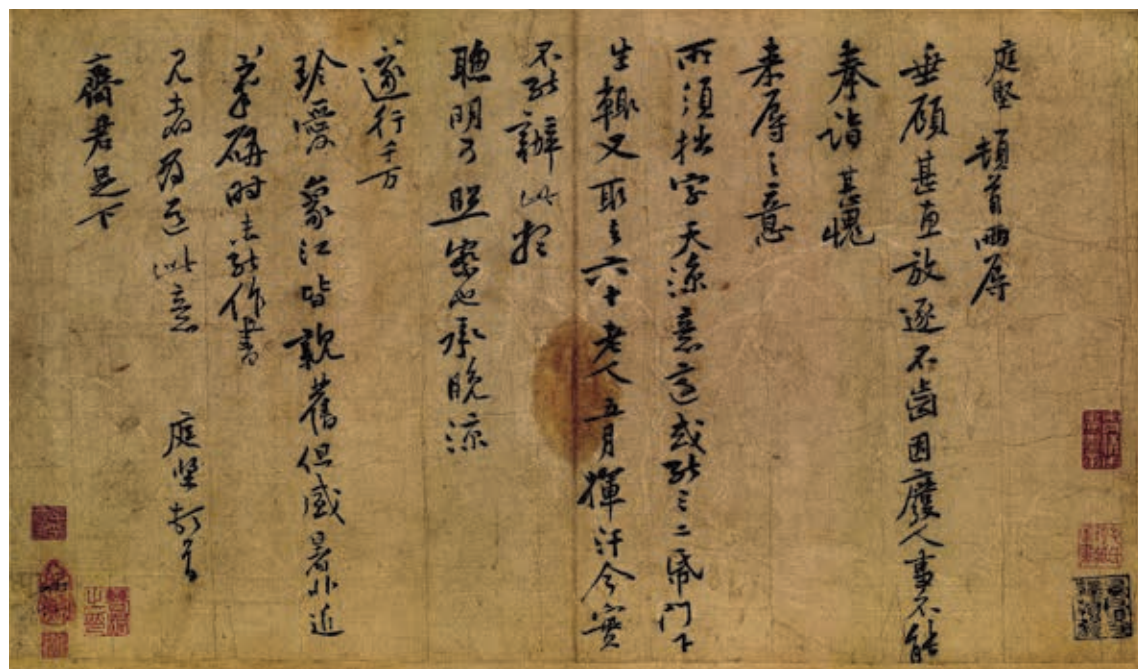 庭堅頓首兩辱
垂顧甚惠放逐不齒因廢人事不能
奉詣甚愧
來辱之意
所須拙字天涼意適或能三二紙門下
生輒又取去六十老人五月揮汗今實
不能辦此想
聰明可照察也承晚涼
遂行千万
珍愛象江皆親舊但盛暑非近
筆硯時未能作書
見者為道此意
庭堅頓首
齊君足下